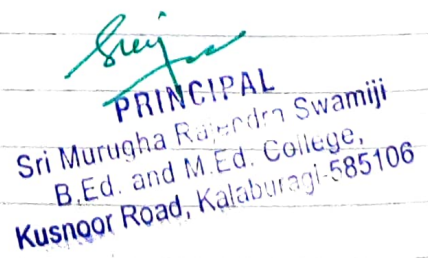 PRINCIPAL
Sri Murugha Rajendra Swamiji
B.Ed. and M.Ed. College,
Kusnoor Road, Kalaburagi-585106